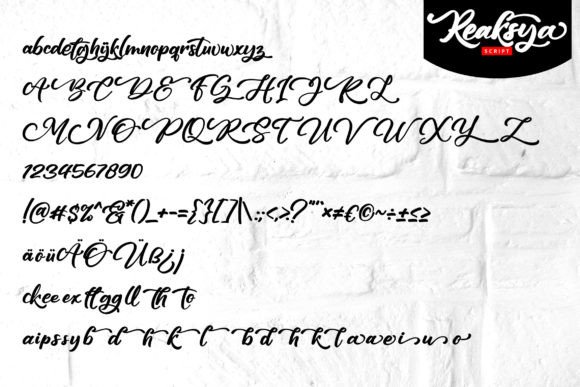 Reaksya
SCRIPT
abcdefghijklmnopqrstuvwxyz
ABCDEFGHIJKL
MNOPQRSTUVWXYZ
1234567890
!@#$%^&*()_+-={}[]|\:;<,>.?"'"¨×≠€©~÷±≤≥
äöüÄÖÜßij
ckeeexttggllthto
aipssybdhklbdhkltaaeiuo